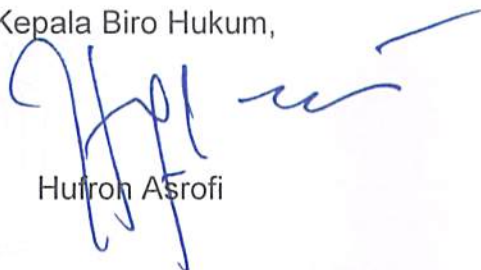 Kepala Biro Hukum,
Hufron Asrofi